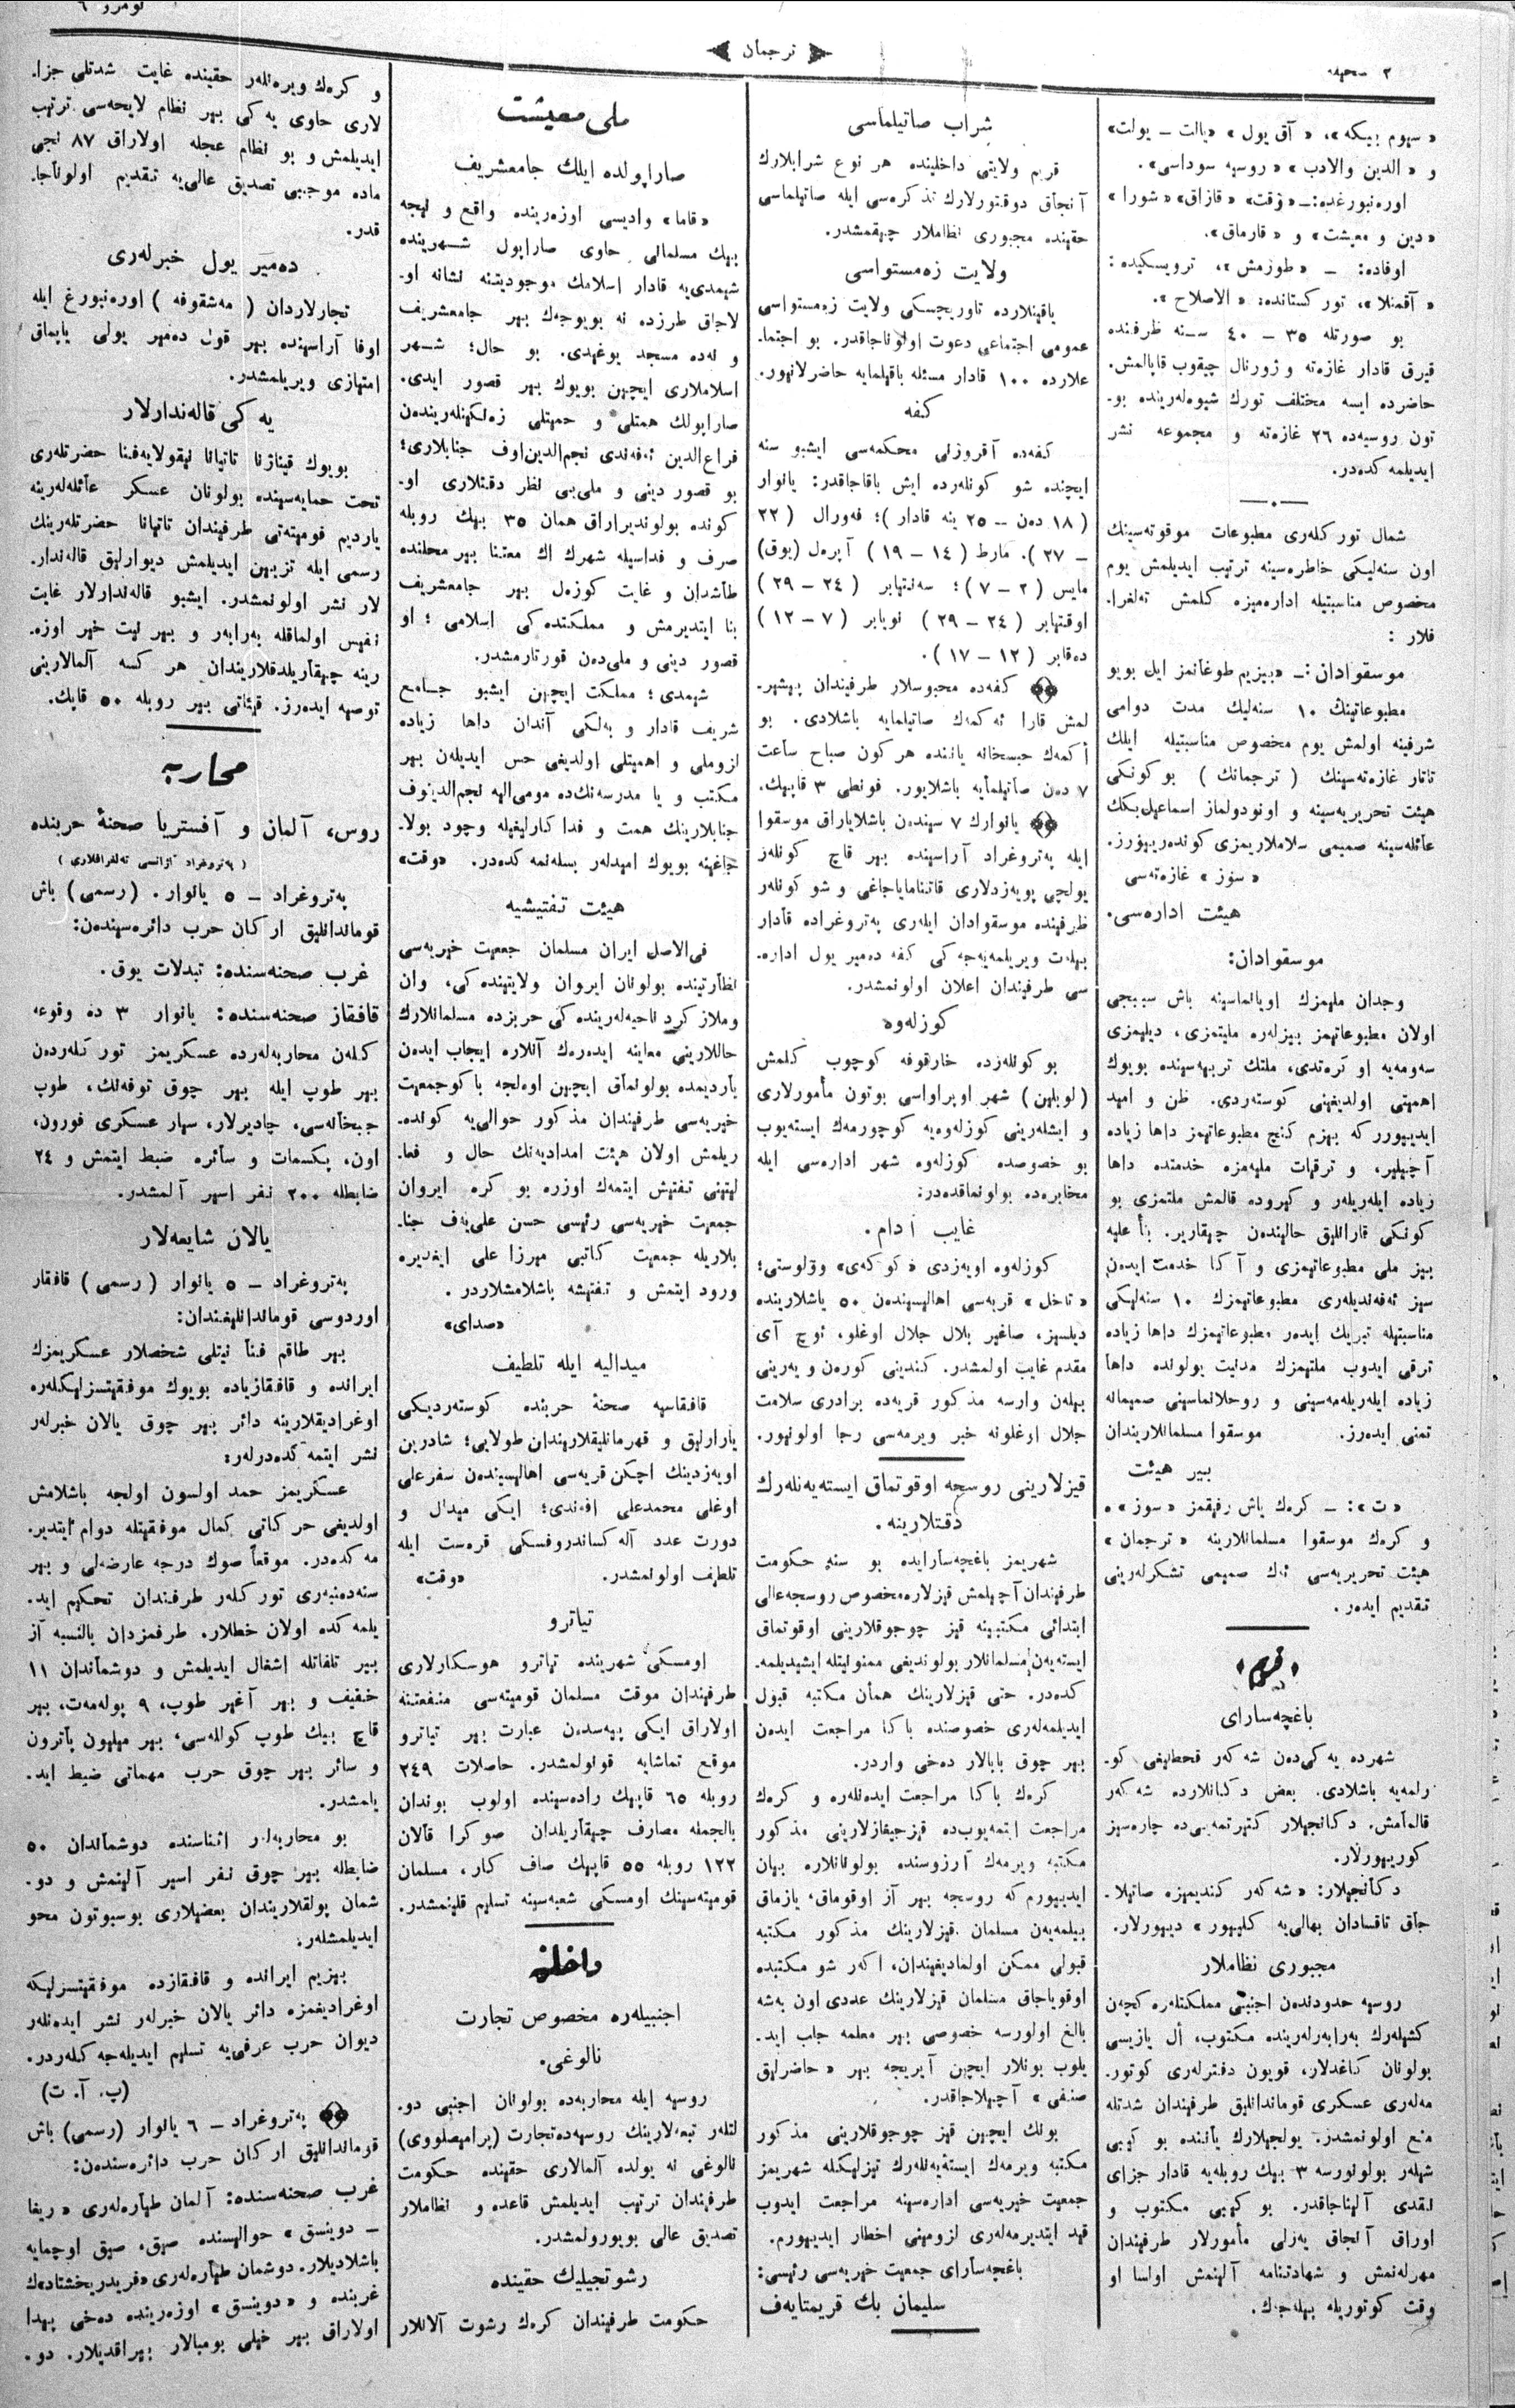 نومرو ٦
ترجمان
٢ صحیفه
« سیوم بیكه»، « آق یول » «یالت ـ یولت»
و « الدین والادب » « روسیه سوداسی».
اوره‌نبورغده:ـ « وقت» « قازاق» « شورا »
«دین و معیشت» و « قارماق».
اوفاده: ـ « طورمش»، ترویسكیده:
« آقمنلا»، توركستانده: « الاصلاح ».
بو صورتله ٣٥ ـ ٤٠ سـنه ظرفنده
قیرق قادار غازه‌ته و ژورنال چیقوب قاپالمش.
حاضرده ایسه مختلف تورك شیوه‌لەرینده بو-
تون روسیه‌ده ٢٦ غازه‌ته و مجموعه نشر
ایدیلمه كده‌در.
شمال توركلەری مطبوعات موقوته‌سینك
اون سنەلیكی خاطره‌سینه ترتیب ایدیلمش یوم
مخصوص مناسبتیله اداره‌میزه كلمش تەلغرا-
فلار :
موسقوادان:ـ «بیزیم طوغانمز ایل بویو
مطبوعاتینك ١٠ سنه‌لیك مدت دوامی
شرفینه اولمش یوم مخصوص مناسبتیله ایلك
تاتار غازه‌ته‌سینك ( ترجمانك ) بو كونكی
هیئت تحریریه‌سینه و اونودولماز اسماعیل‌بكك
عائله‌سینه صمیمی سلاملاریمزی كونده‌ریپورز.
« سوز » غازه‌ته‌سی
هیئت اداره‌سی.
موسقوادان:
وجدان ملیمزك اویانماسینه باش سببجی
اولان مطبوعاتیمز بیزلەره ملیتمزی، دیلیمزی
سه‌ومه‌یه او تره‌تدی، ملتك تربیه‌سینده بویوك
اهمیتی اولدیغینی كوستەردی. ظن و امید
ایدیپورر كه بیزم كنج مطبوعاتیمز داها زیاده
آچیلیر، و ترقیات ملیه‌مزه خدمتده داها
زیاده ایلەریلەر و كیروده قالمش ملتمزی بو
كونكی قارا‌للیق حالیندەن چیقاریر. بناً علیه
بیز ملی مطبوعاتیمزی و آ كا خدمت ایدەن
سیز ئه‌فه‌ندیلەری مطبوعاتیمزك ١٠ سنه‌لیكی
مناسبتیله تبریك ایدەر مطبوعاتیمزك داها زیاده
ترقی ایدوب ملتیمزك مدنیت یولونده داها
زیاده ایلەریلەمه‌سینی و روحلانماسینی صمیمانه
تمنی ایده‌رز. موسقوا مسلمانلاریندان
بیر هیئت
«ت»: ـ كرەك یاش رفیقمز « سوز »ه
و كرەك موسقوا مسلمانلارینه « ترجمان »
هیئت تحریریه‌سی ئه‌ك صمیمی تشكرلەرینی
تقدیم ایدەر.
قریم
باغچه‌سارای
شهرده یه كی‌دەن شه كەر قحطلیغی كو-
رلمه‌یه باشلادی. بعض دكانلارده شه كەر
قالمامش. دكانجیلار كتیرتمه‌یی‌ده چارەسیز
كوریپورلار.
دكانجیلار: «شه كەر كندیمزه صاتیلا-
جاق تاقسادان بهالی‌یه كلیپور» دیپورلار.
مجبوری نظاملار
روسیه حدودندەن اجنبی مملكتلەره كچەن
كشیلەرك به‌رابەرلەرینده مكتوب، أل یازیسی
بولونان كاغدلار، قویون دفترلەری كوتور-
مه‌لەری عسكری قوماندانلیق طرفیندان شدتله
منع اولونمشدر. یولجیلارك یاننده بو كبی
شیلەر بولونورسه ٣ بیك روبله‌یه قادار جزای
نقدی آلیناجاقدر. بو كیبی مكتوب و
اوراق آنجاق یه‌رلی مأمورلار طرفیندان
مهرلەنمش و شهادتنامه آلینمش اولسا او
وقت كوتوریله بیله‌جك.
شراب صاتیلماسی
قریم ولایتی داخلینده هر نوع شرابلارك
آنجاق دوقتورلارك تذكره‌سی ایله صاتیلماسی
حقینده مجبوری نظاملار چیقمشدر.
ولایت زه‌مستواسی
یاقینلارده تاوریچسكی ولایت زه‌مستواسی
عمومی اجتماعی دعوت اولوناجاقدر. بو اجتما-
علارده ١٠٠ قادار مسئله باقیلمایه حاضرلانیور.
كفه
كفه‌ده آقروزنی محكمه‌سی ایشبو سنه
ایچنده شو كونلەرده ایش باقاجاقدر: یانوار
( ١٨ دەن ـ ٢٥ ینه قادار )؛ فه‌ورال ( ٢٢
ـ ٢٧ ). مارط ( ١٤ ـ ١٩ ) آپرەل (یوق)
مایس ( ٢ ـ ٧ )؛ سه‌نتیابر ( ٢٤ ـ ٢٩ )
اوقتیابر ( ٢٤ ـ ٢٩ ) نویابر ( ٧ ـ ١٢ )
ده‌قابر ( ١٢ ـ ١٧ ).
كفه‌ده محبوسلار طرفیندان پیشیر-
لمش قارا ئه كمەك صاتیلمایه باشلادی. بو
أكمەك حبسخانه یاننده هر كون صباح ساعت
٧ دەن صاتیلمایه باشلایور. فونطی ٣ قاپیك.
یانوارك ٧ سیندەن باشلایاراق موسقوا
ایله پەتروغراد آراسینده بیر قاچ كونلەر
یولجی پویه‌زدلاری قاتناماياجاغی و شو كونلەر
ظرفینده موسقوادان ایلەری پەتروغراده قادار
بیله‌ت ویریلمه‌یه‌جه كی كفه ده‌میر یول اداره-
سی طرفیندان اعلان اولونمشدر.
كوزلەوه
بو كونلەزده خارقوفه كوچوب كلمش
(لوبلین) شهر اوپراواسی بوتون مأمورلاری
و ایشلەرینی كوزلەوه‌یه كوچورمەك ایستەیوب
بو خصوصده كوزلەوه شهر اداره‌سی ایله
مخابره‌ده بولونماقده‌در:
غایب آدام.
كوزلەوه اویه‌زدی « كوكه‌ی» وولوستی؛
« تاخل » قریه‌سی اهالیسیندەن ٥٠ یاشلارینده
دیلسیز، صاغیر بلال جلال اوغلو، ئوچ آی
مقدم غایب اولمشدر. كندینی كورەن و یه‌رینی
بیلەن وارسه مذكور قریه‌ده برادری سلامت
جلال اوغلونه خبر ویرمه‌سی رجا اولونیور.
قیزلارینی روسچه اوقوتماق ایسته‌یه‌نلەرك
دقتلارینه.
شهریمز باغچه‌سارایده بو سنه حكومت
طرفیندان آچیلمش قیزلاره‌مخصوص روسجه‌عالی
ابتدائی مكتبینه قیز چوجوقلارینی اوقوتماق
ایستەیەن مسلمانلار بولوندیغی ممنونیتله ایشیدیلمه-
كده‌در. حتی قیزلارینك همأن مكتبه قبول
ایدیلمه‌لەری خصوصنده باكا مراجعت ایدەن
بیر چوق بابالار دەخی واردر.
كرەك باكا مراجعت ایدەنلەره و كرەك
مراجعت ایتمه‌یوب‌ده قیزجیقازلارینی مذكور
مكتبه ویرمەك آرزوسنده بولونانلاره بیان
ایدیپورم كه روسجه بیر آز اوقوماق، یازماق
بیلمه‌یەن مسلمان قیزلارینك مذكور مكتبه
قبولی ممكن اولمادیغیندان، اكەر شو مكتبده
اوقویاجاق مسلمان قیزلارینك عددی اون بەشه
بالغ اولورسه خصوصی بیر معلمه جلب اید-
یلوب بونلار ایچین آیریجه بیر « حاضرلیق
صنفی » آچیلاجاقدر.
بونك ایچین قیز چوجوقلارینی مذكور
مكتبه ویرمەك ایسته‌یه‌نلەرك تیزلیكله شهریمز
جمعیت خیریه‌سی اداره‌سینه مراجعت ایدوب
قید ایتدیرمه‌لەری لزومینی اخطار ایدیپورم.
باغچه‌سارای جمعیت خیریه‌سی رئیسی:
سلیمان بك قریمتایەف
ملی معیشت
صاراپولده ایلك جامعشریف
«قاما» وادیسی اوزەرینده واقع و نیجه
بیك مسلمانی حاوی صاراپول شـهرینده
شیمدی‌یه قادار اسلامك موجودیتنه نشانه او-
لاجاق طرزده نه بویوجەك بیر جامعشریف
و نه‌ده مسجد یوغیدی. بو حال؛ شـهر
اسلاملاری ایچین بویوك بیر قصور ایدی.
صاراپولك همتلی و حمیتلی زه‌نكینلەریندەن
فراع‌الدین ئه‌فه‌ندی نجم‌الدین‌اوف جنابلاری؛
بو قصور دینی و ملی‌یی نظر دقتلاری او-
كونده بولوندیراراق همان ٣٥ بیك روبله
صرف و فداسیله شهرك اك معتنا بیر محلنده
طاشدان و غایت كوزەل بیر جامعشریف
بنا ایتدیرمش و مملكتده كی اسلامی ؛ او
قصور دینی و ملی‌دەن قورتارمشدر.
شیمدی؛ مملكت ایچین ایشبو جـامع
شریف قادار و بەلكی آندان داها زیاده
لزوملی و اهمیتلی اولدیغی حس ایدیلەن بیر
مكتب و یا مدرسه‌نك‌ده مومی‌الیه نجم‌الدینوف
جنابلارینك همت و فداكارلیغیله وجود بولا-
جاغینه بویوك امیدلەر بسله‌نمه كده‌در. «وقت»
هیئت تفتیشیه
فی‌الاصل ایران مسلمان جمعیت خیریه‌سی
نظارتینده بولونان ایروان ولایتینده كی، وان
وملازكرد ناحیه‌لەرینده كی حربزده مسلمانلارك
حاللارینی معاینه ایدەرەك آنلاره ایجاب ایدەن
یأردیمده بولونماق ایچین اوه‌لجه باكوجمعیت
خیریه‌سی طرفیندان مذكور حوالی‌یه كونده-
ریلمش اولان هیئت امدادیه‌نك حال و فعا-
لیتینی تفتیش ایتمەك اوزره بو كره ایروان
جمعیت خیریه‌سی رئیسی حسن علی‌یەف جنا-
بلاریله جمعیت كاتبی میرزا علی ایغدیره
ورود ایتمش و تفتیشه باشلامشلاردر.
«صدای»
میدالیه ایله تلطیف
قافقاسیه صحنهٔ حربنده كوسته‌ردیكی
یارارلیق و قهرمانلیقلاریندان طولایی؛ شادرین
اویه‌زدینك اچكن قریه‌سی اهالیسیندەن سفرعلی
اوغلی محمدعلی افه‌ندی؛ ایكی میدال و
دورت عدد آله‌كساندروفسكی قره‌ست ایله
تلطیف اولونمشدر. «وقت»
تیاترو
اومسكی شهرینده تیاترو هوسكارلاری
طرفیندان موقت مسلمان قومیته‌سی منفعتنه
اولاراق ایكی پیه‌سدەن عبارت بیر تیاترو
موقع تماشایه قونولمشدر. حاصلات ٢٤٩
روبله ٦٥ قاپیك راده‌سینده اولوب بوندان
بالجمله مصارف چیقاریلدان صوكرا قالان
١٢٢ روبله ٥٥ قاپیك صاف كار، مسلمان
قومیته‌سینك اومسكی شعبه‌سینه تسلیم قلینمشدر.
داخلیه
اجنبیلەره مخصوص تجارت
نالوغی.
روسیه ایله محاربه‌ده بولونان اجنبی دو-
لتلەر تبعه‌لارینك روسیه‌ده‌تجارت (پرامیصلووی)
نالوغی نه یولده آلمالاری حقینده حكومت
طرفیندان ترتیب ایدیلمش قاعده و نظاملار
تصدیق عالی بویورولمشدر.
رشوتجیلیك حقینده
حكومت طرفیندان كرەك رشوت آلانلار
و كرەك ویرەنلەر حقینده غایت شدتلی جزا-
لاری حاوی یه كی بیر نظام لایحه‌سی ترتیب
ایدیلمش و بو نظام عجله اولاراق ٨٧ نجی
ماده موجبی تصدیق عالی‌یه تقدیم اولوناجا-
قدر.
ده‌میر یول خبرلەری
تجارلاردان ( مه‌شقوفه ) اوره‌نبورغ ایله
اوفا آراسینده بیر قول ده‌میر یولی یاپماق
امتیازی ویریلمشدر.
یه كی قاله‌ندارلار
بویوك قیناژنا تاتیانا نیقولایه‌فنا حضرتلەری
تحت حمایه‌سینده بولونان عسكر عائله‌لەرینه
یاردیم قومیته‌تی طرفیندان تاتیانا حضرتلەرینك
رسمی ایله تزیین ایدیلمش دیوارلیق قاله‌ندار-
لار نشر اولونمشدر. ایشبو قاله‌ندارلار غایت
نفیس اولماقله به‌رابەر و بیر نیت خیر اوزه-
رینه چیقاریلدقلاریندان هر كسه آلمالارینی
توصیه ایده‌رز. قیمتاتی بیر روبله ٥٠ قاپك.
محاربه
روس، آلمان و آفستریا صحنهٔ حربنده
( پەتروغراد آژانسی تەلغرافلاری )
پەتروغراد ـ ٥ یانوار. (رسمی) باش
قوماندانلیق اركان حرب دائره‌سیندەن:
غرب صحنه‌سنده: تبدلات یوق.
قافقاز صحنه‌سنده: یانوار ٣ ده وقوعه
كلەن محاربه‌لەرده عسكریمز توركلەردەن
بیر طوپ ایله بیر چوق توفه‌نك، طوپ
جبخانه‌سی، چادیرلار، سیار عسكری فورون،
اون، بكسمات و سائره ضبط ایتمش و ٢٤
ضابطله ٢٠٠ نفر اسیر آلمشدر.
یالان شایعه‌لار
پەتروغراد ـ ٥ یانوار ( رسمی ) قافقار
اوردوسی قوماندانلیغندان:
بیر طاقم فنا نیتلی شخصلار عسكریمزك
ایرانده و قافقازیاده بویوك موفقیتسزلیكلەره
اوغرادیقلارینه دائر بیر چوق یالان خبرلەر
نشر ایتمه كده‌درلەر:
عسكریمز حمد اولسون اولجه باشلامش
اولدیغی حركاتی كمال موفقیتله دوام ایتدیر-
مه كده‌در. موقعاً صوك درجه عارضه‌لی و بیر
سنه‌ده‌نبه‌ری توركلەر طرفندان تحكیم اید-
یلمه كده اولان خطلار. طرفمزدان بالنسبه آز
بیر تلفاتله إشغال ایدیلمش و دوشماندان ١١
خفیف و بیر آغیر طوپ، ٩ پوله‌مه‌ت، بیر
قاچ بیك طوپ كوللەسی، بیر میلیون پاترون
و سائر بیر چوق حرب مهماتی ضبط اید-
یلمشدر.
بو محاربه‌لر اثناسنده دوشماندان ٥٠
ضابطله بیر چوق نفر اسیر آلینمش و دو-
شمان پولقلاریندان بعضیلاری بوسبوتون محو
ایدیلمشلەر.
بیزیم ایرانده و قافقازده موفقیتسزلیكه
اوغرادیغمزه دائر یالان خبرلەر نشر ایدەنلەر
دیوان حرب عرفی‌یه تسلیم ایدیله‌جه كلەردر.
(پ. آ. ت)
پەتروغراد ـ ٦ یانوار (رسمی) باش
قوماندانلیق اركان حرب دائره‌سندەن:
غرب صحنه‌سنده: آلمان طیاره‌لەری « ریغا
ـ دوینسق » حوالیسنده صیق، صیق اوچمایه
باشلادیلار. دوشمان طیاره‌لەری «فریدریخشتاد»ك
غربنده و «دوینسق» اوزەرینده دەخی پیدا
اولاراق بیر خیلی بومبالار بیراقدیلار. دو-